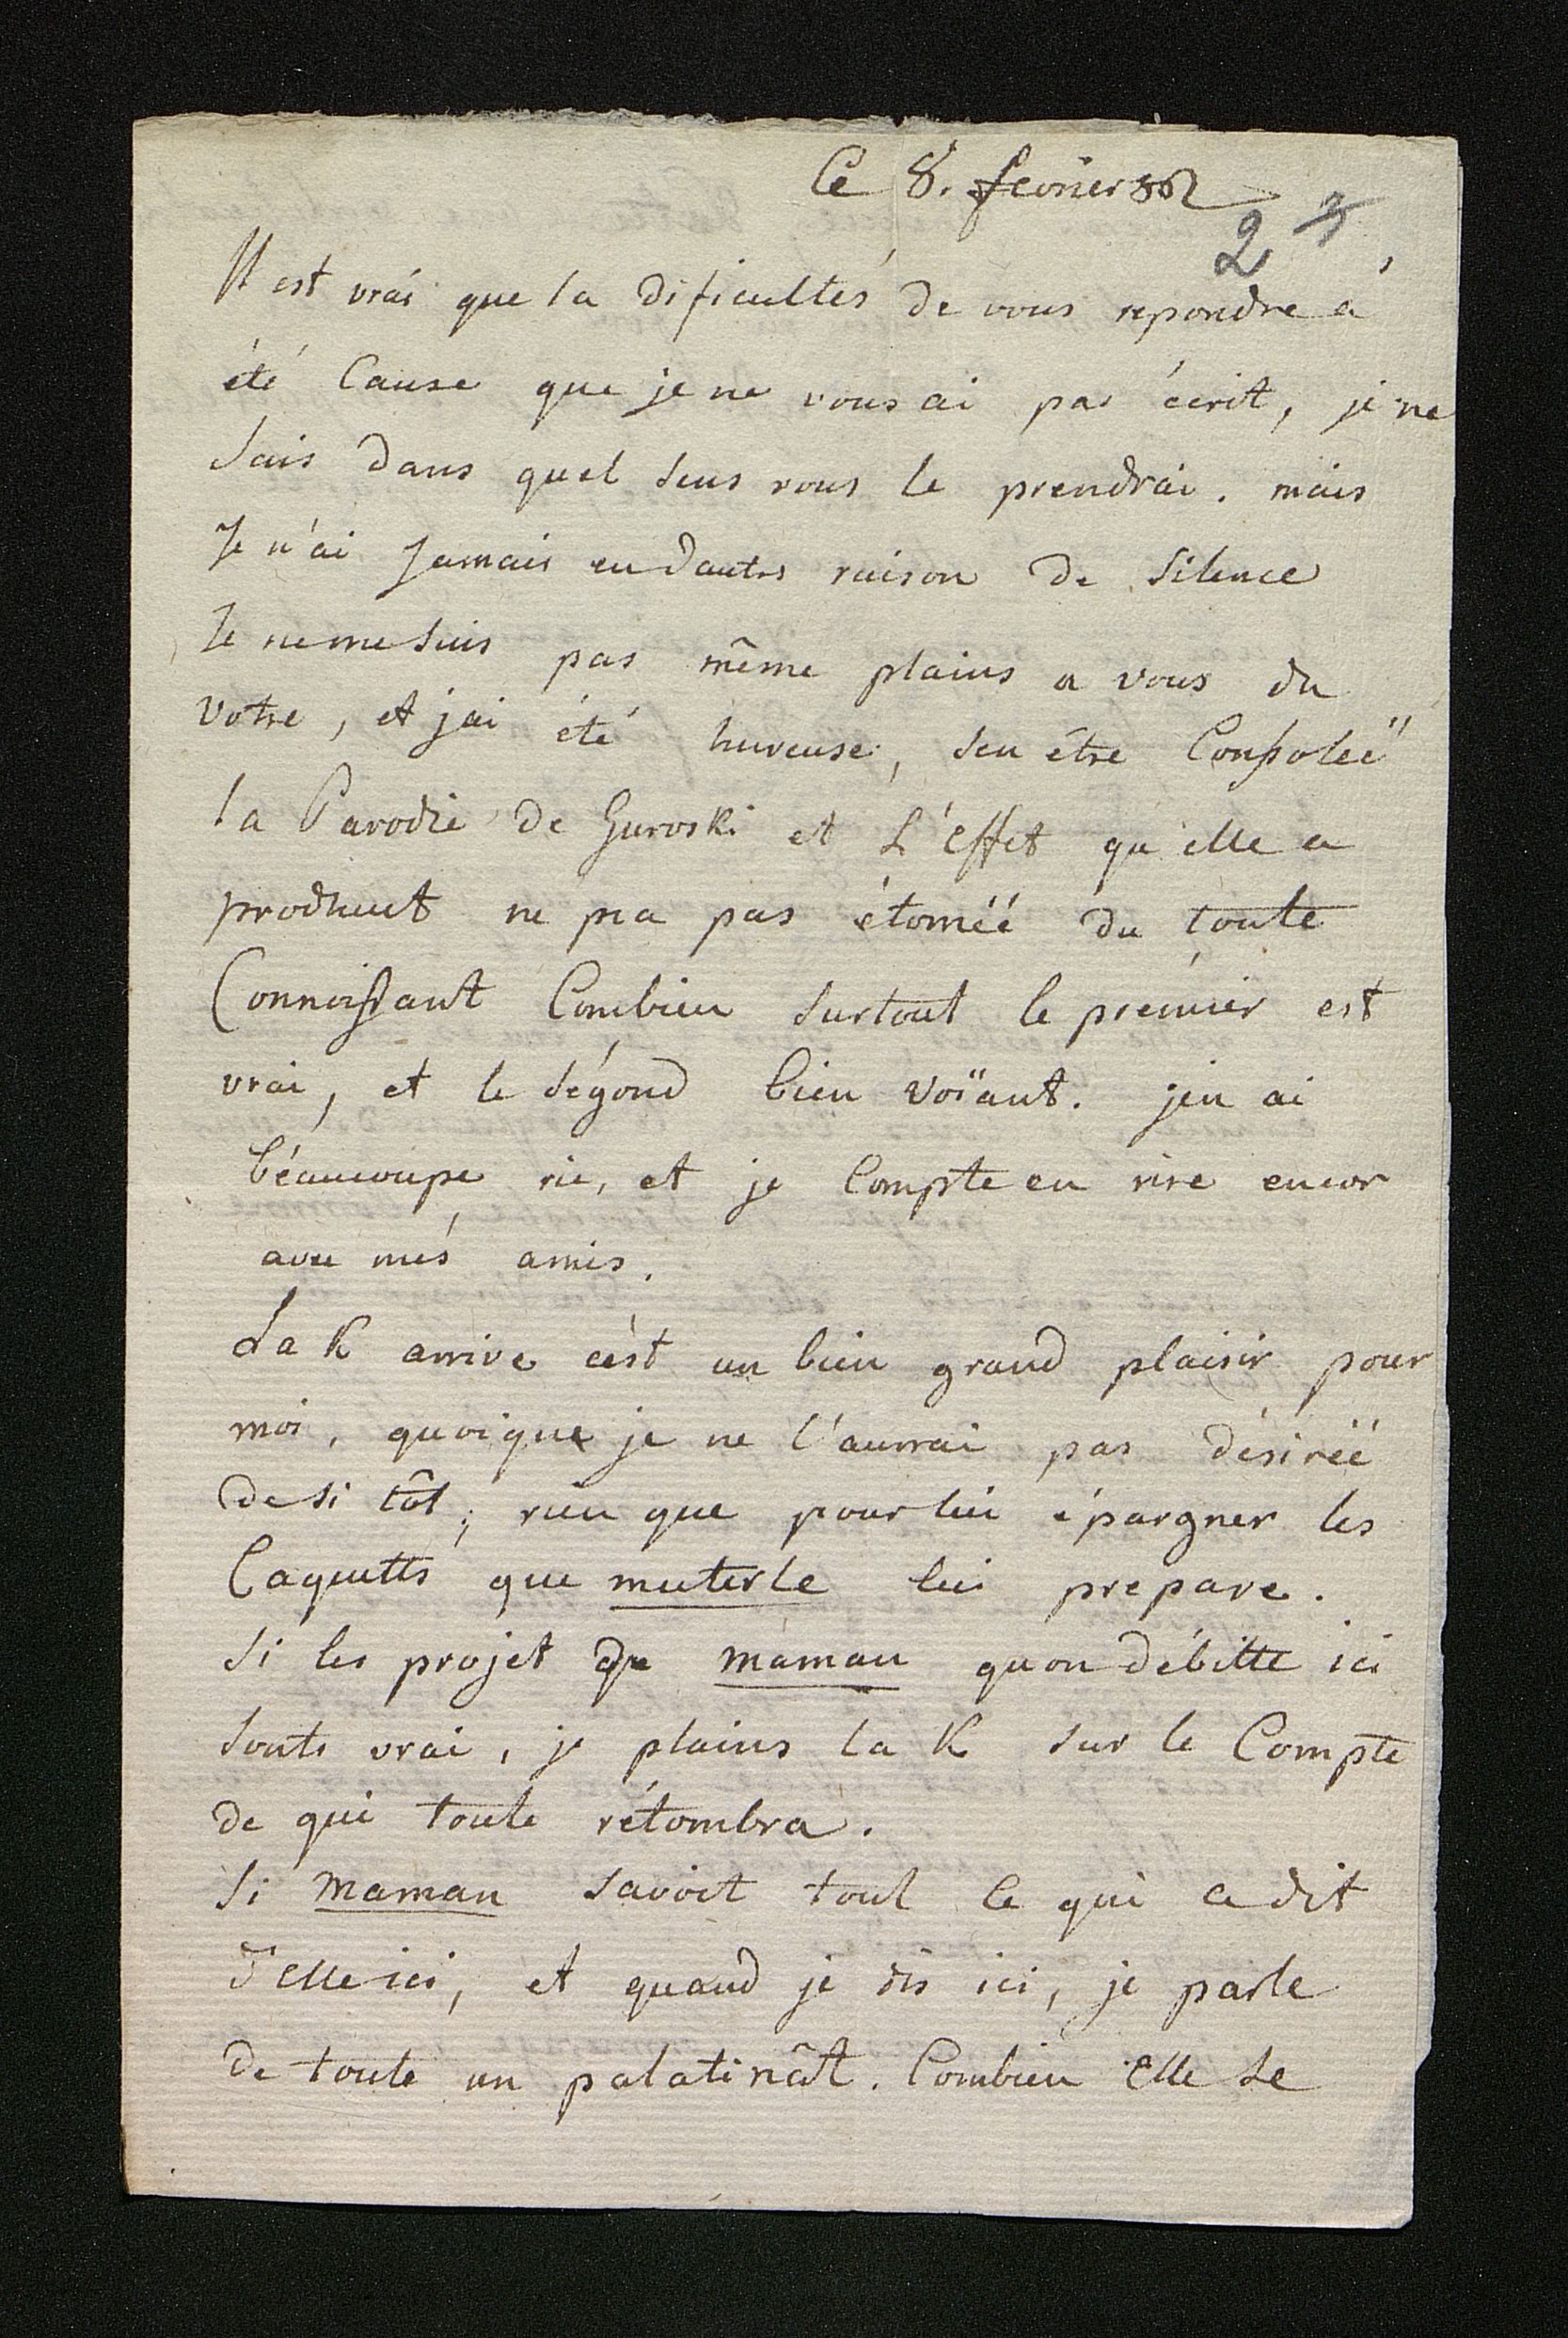 Ce 8. fevrier
2 3
Il est vrái que la dificultés de vous repondre á
été Cause que je ne vous ai pas écrit, je ne
Sais dans quel Sens vous le prendrai. mais
Je n'ai Jamais eu dautes raison de Silence
Je ne me Suis pas même plains a vous du
votre, et j'ai été hureuse, Sen être Consoleé
la Parodie de Guroski et L'Effet qu'elle a
produit ne ma pas étonéé du toute
Connoissant Combien Surtout le premier est
vrai, et le ségond bien voïant. jen ai
béaucoupe rie, et je Compte en rire encor
avec més amis.
La K arrive cést un bien grand plaisir pour
moi, quoique je ne l'aurrai pas désiréé
de si tôt; rien que pour lui épargner les
Caquetts que muterle lui prepare.
Si les projet de maman quon débitte ici
Sonts vrai, je plains la K Sur le Compte
de qui toute rétombra.
Si maman Savoit tout Ce qui Ce dit
d'elle ici, et quand je dis ici, je parle
de toute un palatinât. Combien Elle Se